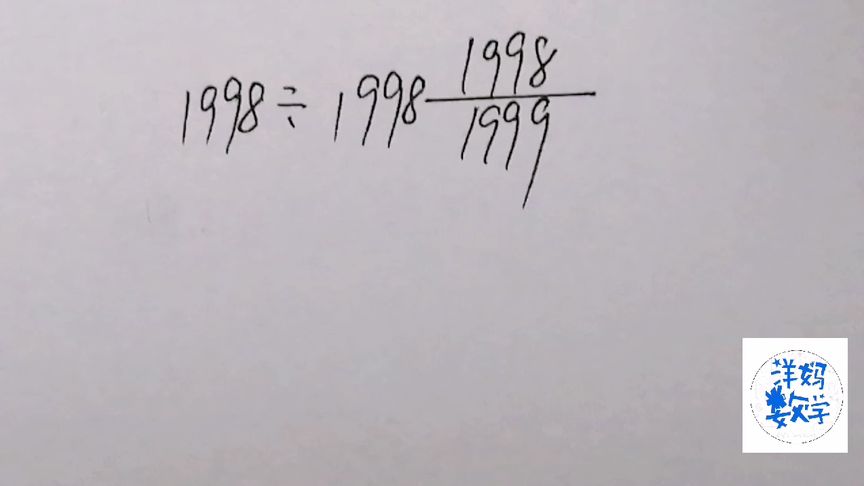 1998÷1998 1998/1999
洋妈
数学